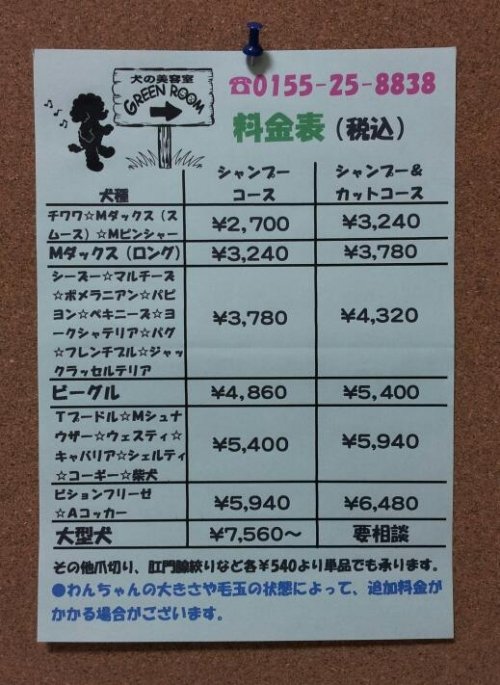 犬の美容室
GREEN ROOM
☎0155-25-8838
料金表(税込)
犬種
シャンプー
コース
シャンプー&
カットコース
チワワ☆Mダックス(ス
ムース)☆Mピンシャー
¥2,700
¥3,240
Mダックス(ロング)
¥3,240
¥3,780
シーズー☆マルチーズ
☆ポメラニアン☆パピ
ヨン☆ペキニーズ☆ヨ
ークシャテリア☆パグ
☆フレンチブル☆ジャッ
クラッセルテリア
¥3,780
¥4,320
ビーグル
¥4,860
¥5,400
Tプードル☆Mシュナ
ウザー☆ウェスティ☆
キャバリア☆シェルティ
☆コーギー☆柴犬
¥5,400
¥5,940
ビションフリーゼ
☆Aコッカー
¥5,940
¥6,480
大型犬
¥7,560～
要相談
その他爪切り、肛門腺絞りなど各¥540より単品でも承ります。
●わんちゃんの大きさや毛玉の状態によって、追加料金が
かかる場合がございます。